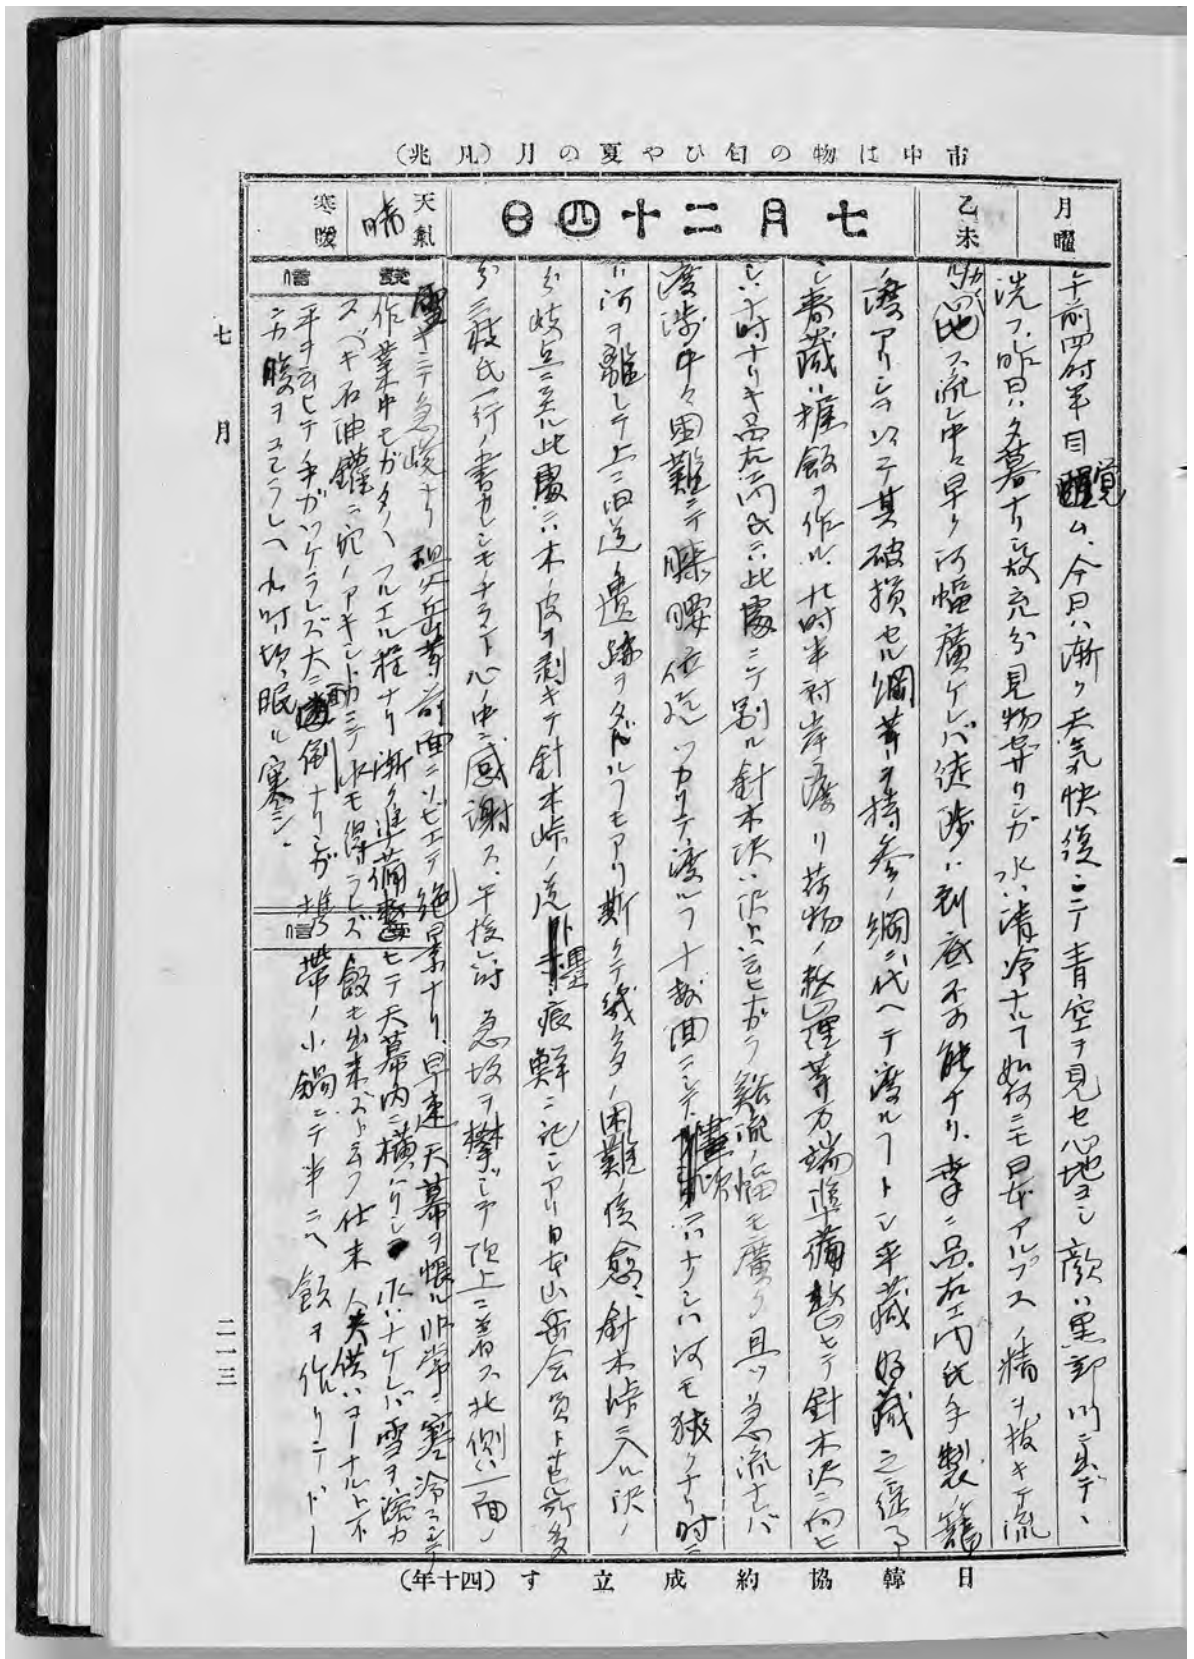 市中は物の匂ひや夏の月（凡兆）
月曜
乙未
七月二十四日
天氣 晴
寒暖
午前四時半目覚ム、今日ハ漸ク天気快復シテ青空ヲ見セ心地ヨシ顔ハ黒部川ニ出デ、
洗フ、昨日ハ夕暮ナリシ故充分見物出来ザリシガ水ハ清冷ナルコト如何ニモ日本アルプスノ精ヲ抜キテ流
ルカノ心地ス流レ中々早ク河幅廣ケレバ徒渉ハ到底不可能ナリ、幸ニ品右エ門氏手製ノ籠
ノ渡アリシヲ以テ其破損セル綱等ヲ持参ノ綱ニ代ヘテ渡ルコトトシ平蔵 好蔵 之従事
シ春蔵ハ握飯ヲ作ル、九時半対岸ニ渡リ荷物ノ整理等万端準備整ヒテ針木沢ニ向ヒ
シハ十時ナリキ品右エ門氏ニハ此処ニテ別ル針木沢ハ沢トハ云ヒナガラ谿流ノ幅モ廣ク且ツ急流ナレバ
渡渉中々困難ニテ膝腰
ツカリテ渡ルコト十数回ニシテ
ハナクシハ河モ狭クナリ時ニ
ハ河ヲ離レテ上ニ旧道ノ遺跡ヲタドルコトモアリ斯クテ幾多ノ困難ノ後愈々針木峠ニ入ル沢ノ
分岐点ニ至ル此処ニハ木ノ皮ヲ剥ギテ針木峠ノ道ト墨痕鮮ニ記シアリ日本山岳会員ト
分三枝氏一行ノ書カレシモノナラント心ノ中ニ感謝ス、午後
時 急坂ヲ攀ヂテ頂上ニ着ス北側ハ一面ノ
發信
雪ニテ急峻ナリ
岳等前面ニソビエテ絶景ナリ、早速天幕ヲ張ル非常ニ寒冷ニシテ
作業中モガタガタフルエル程ナリ漸ク準備整ヒテ天幕内ニ横ハリシモ水ハナケレバ雪ヲ溶カ
スベキ石油鑵ニ穴ノアキシトカニテ水モ得ラレズ飯モ出来ズト云フ仕末 人夫供ハコーナルト不
平ヲ云ヒテ手ガツケラレズ大ニ面倒ナリシガ携帯ノ小鍋ニテ半ニヘ飯ヲ作リテドー
ニカ腹ヲコシラヘ九時頃眠ル寒シ、
受信
七月
二一三
日韓協約成立す（四十年）